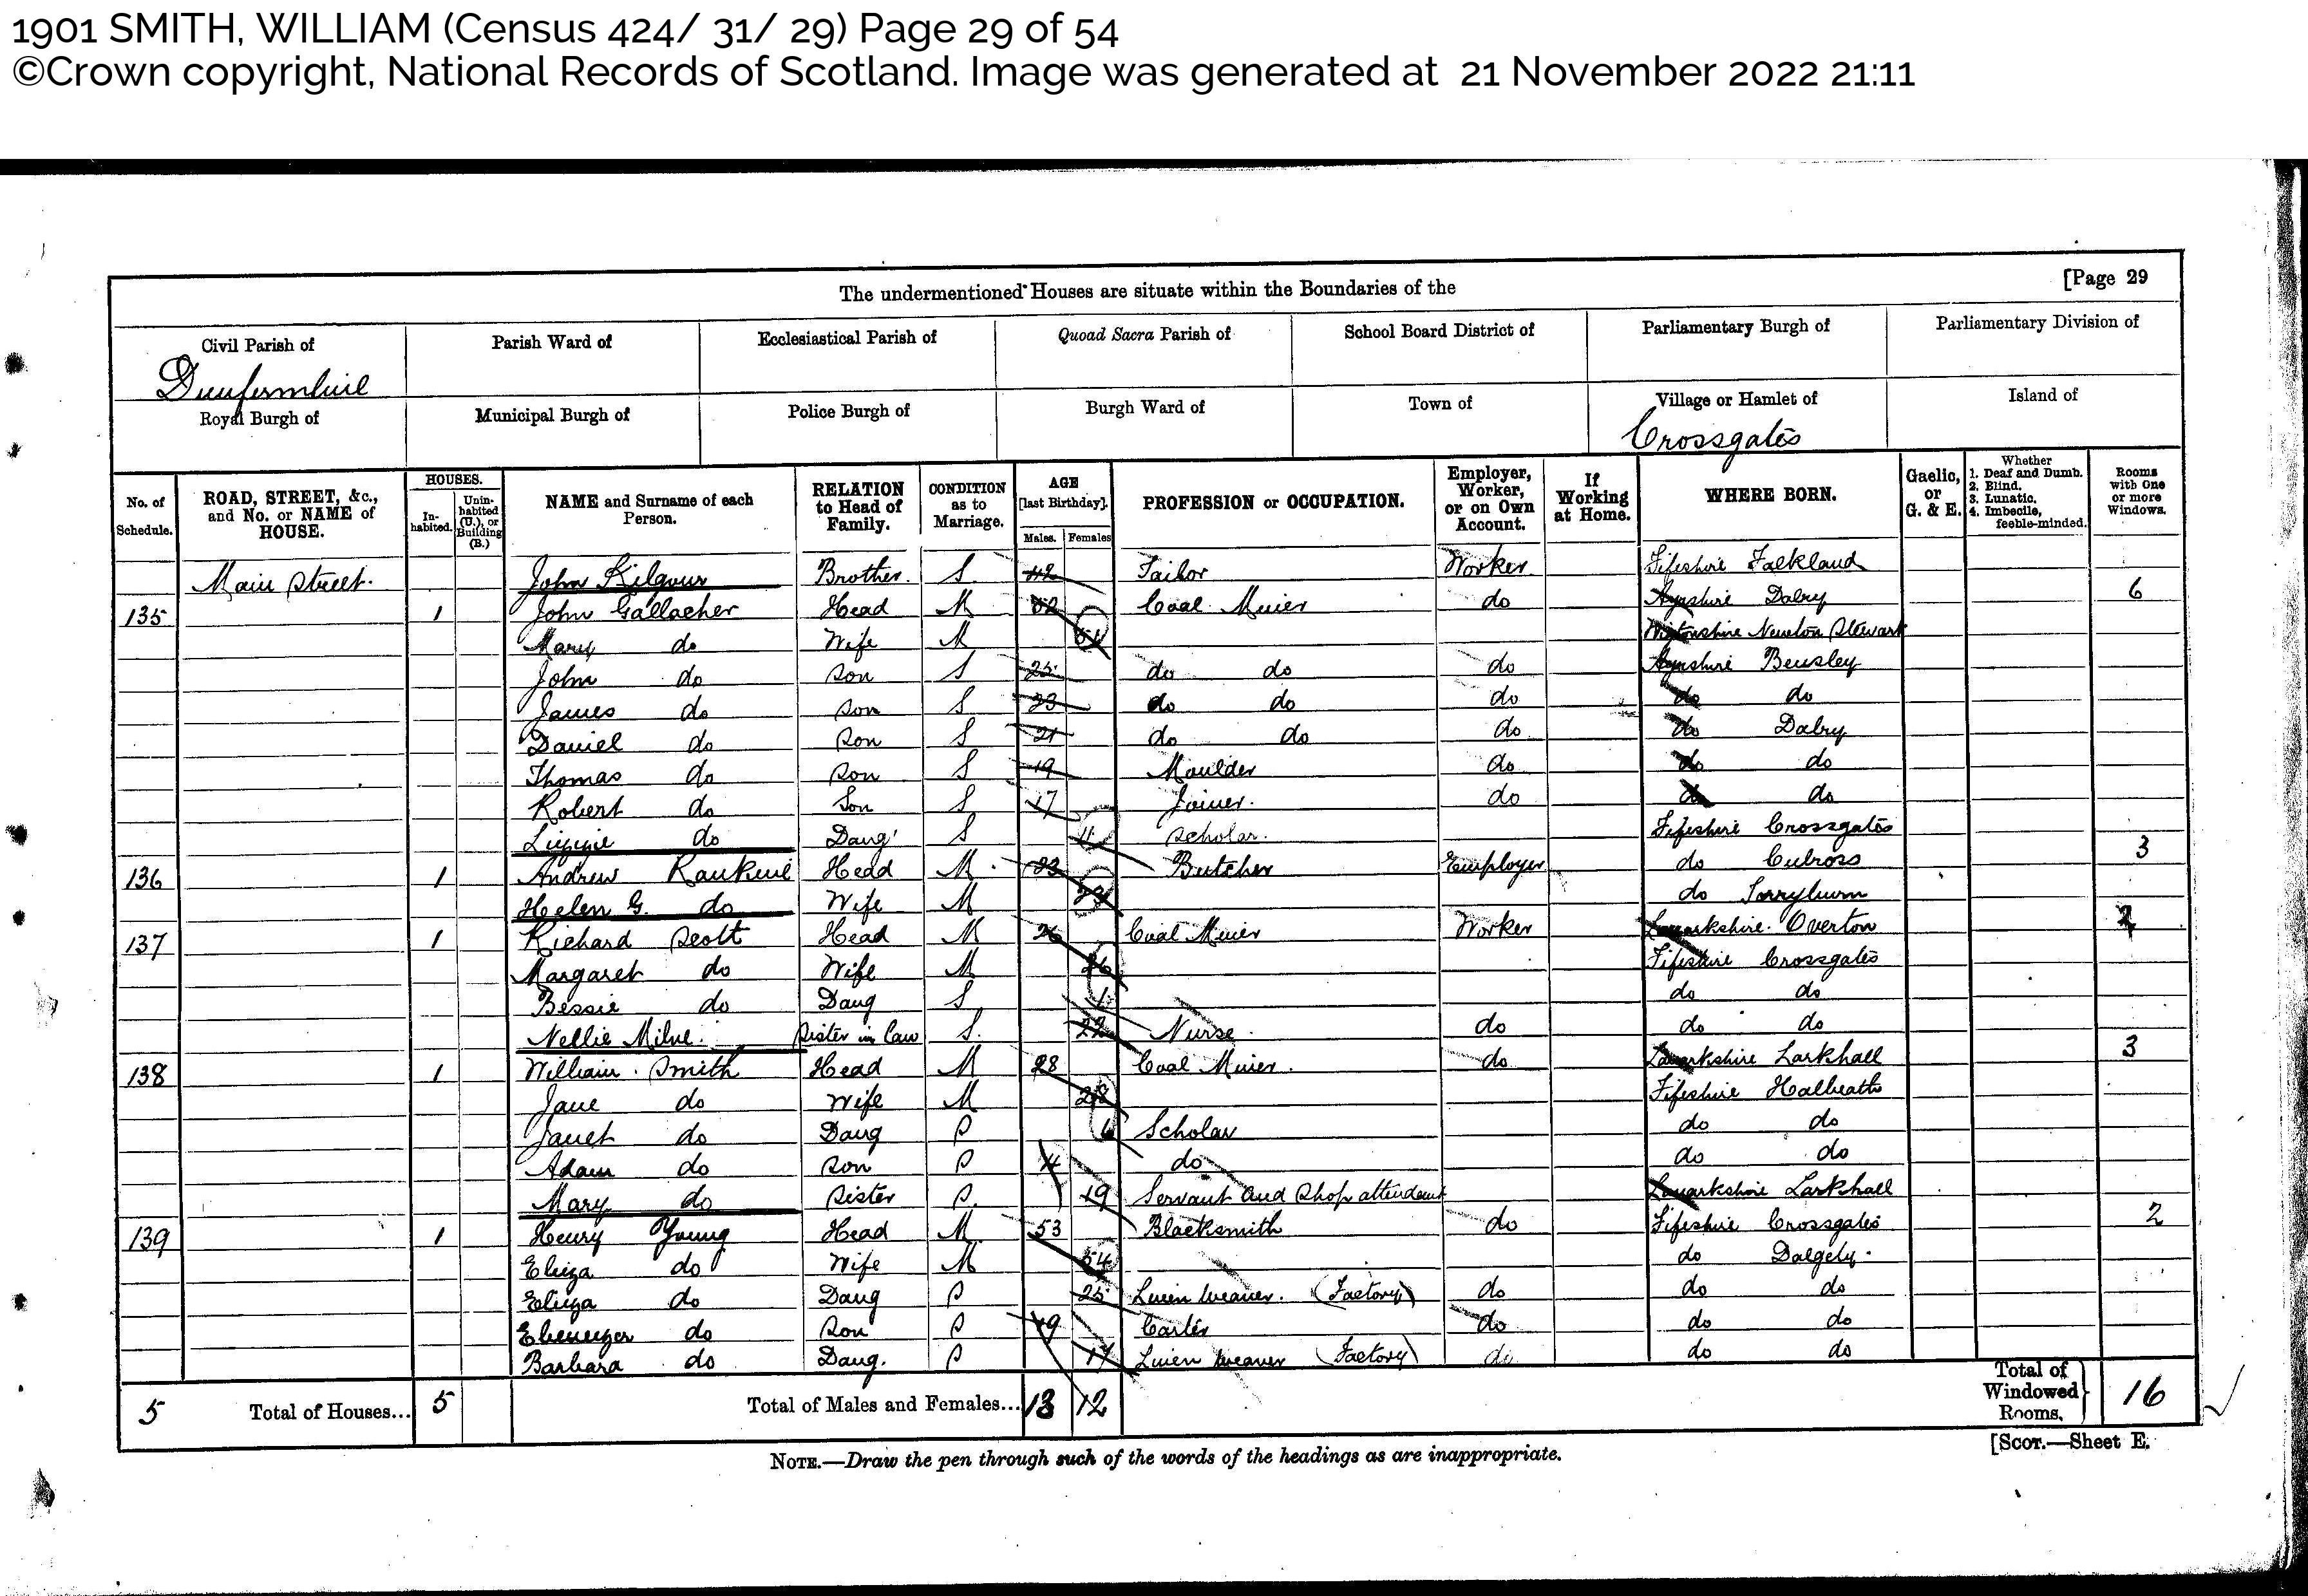 1901 SMITH, WILLIAM (Census 424/ 31/ 29) Page 29 of 54
©Crown copyright, National Records of Scotland. Image was generated at 21 November 2022 21:11
[Page 29
The undermentioned Houses are situate within the Boundaries of the
Civil Parish of Parish Ward of Ecclesiastical Parish of Quoad Sacra Parish of School Board District of Parliamentary Burgh of Parliamentary Division of
Dunfermline
Royal Burgh of Municipal Burgh of Police Burgh of Burgh Ward of Town of Village or Hamlet of Island of
Crossgates
No. of Schedule. ROAD, STREET, &c., and No. or NAME of HOUSE. HOUSES. In-habited. Unin-habited (U.), or Building (B.) NAME and Surname of each Person. RELATION to Head of Family. CONDITION as to Marriage. AGE [last Birthday]. Males. Females PROFESSION or OCCUPATION. Employer, Worker, or on Own Account. If Working at Home. WHERE BORN. Gaelic, or G. & E. Whether 1. Deaf and Dumb. 2. Blind. 3. Lunatic. 4. Imbecile, feeble-minded. Rooms with One or more Windows.
Main Street. John Kilgour Brother. S. 42 Tailor Worker Fifeshire Falkland
135 1 John Gallacher Head M 52 Coal Miner do Ayrshire Dalry 6
Mary do Wife M Wigtonshire Newton Stewart
John do Son S 25 do do do Ayrshire Bensley
James do Son S 23 do do do do do
Daniel do Son S 21 do do do do Dalry
Thomas do Son S 19 Moulder do do do
Robert do Son S 17 Joiner. do do do
Lizzie do Daug' S 11 Scholar. Fifeshire Crossgates
136 1 Andrew Rankine Head M 23 Butcher Employer do Culross 3
Helen G. do Wife M 23 do Torryburn
137 1 Richard Scott Head M 26 Coal Miner Worker Lanarkshire Overton 2
Margaret do Wife M 26 Fifeshire Crossgates
Bessie do Daug S 1 do do
Nellie Milne. Sister in law S. 22 Nurse. do do do
138 1 William Smith Head M 28 Coal Miner. do Lanarkshire Larkhall 3
Jane do Wife M 28 Fifeshire Halbeath
Janet do Daug S 6 Scholar do do
Adam do Son S 4 do do do
Mary do Sister S. 19 Servant and Shop attendant Lanarkshire Larkhall
139 1 Henry Young Head M. 53 Blacksmith do Fifeshire Crossgates 2
Eliza do Wife M 54 do Dalgety.
Eliza do Daug S 25 Linen Weaver. (Factory) do do do
Ebenezer do Son S 19 Carter do do do
Barbara do Daug. S 17 Linen Weaver (Factory) do do do
5 Total of Houses... 5 Total of Males and Females... 13 12 Total of Windowed Rooms. 16
[SCOT.—Sheet E.
NOTE.—Draw the pen through such of the words of the headings as are inappropriate.